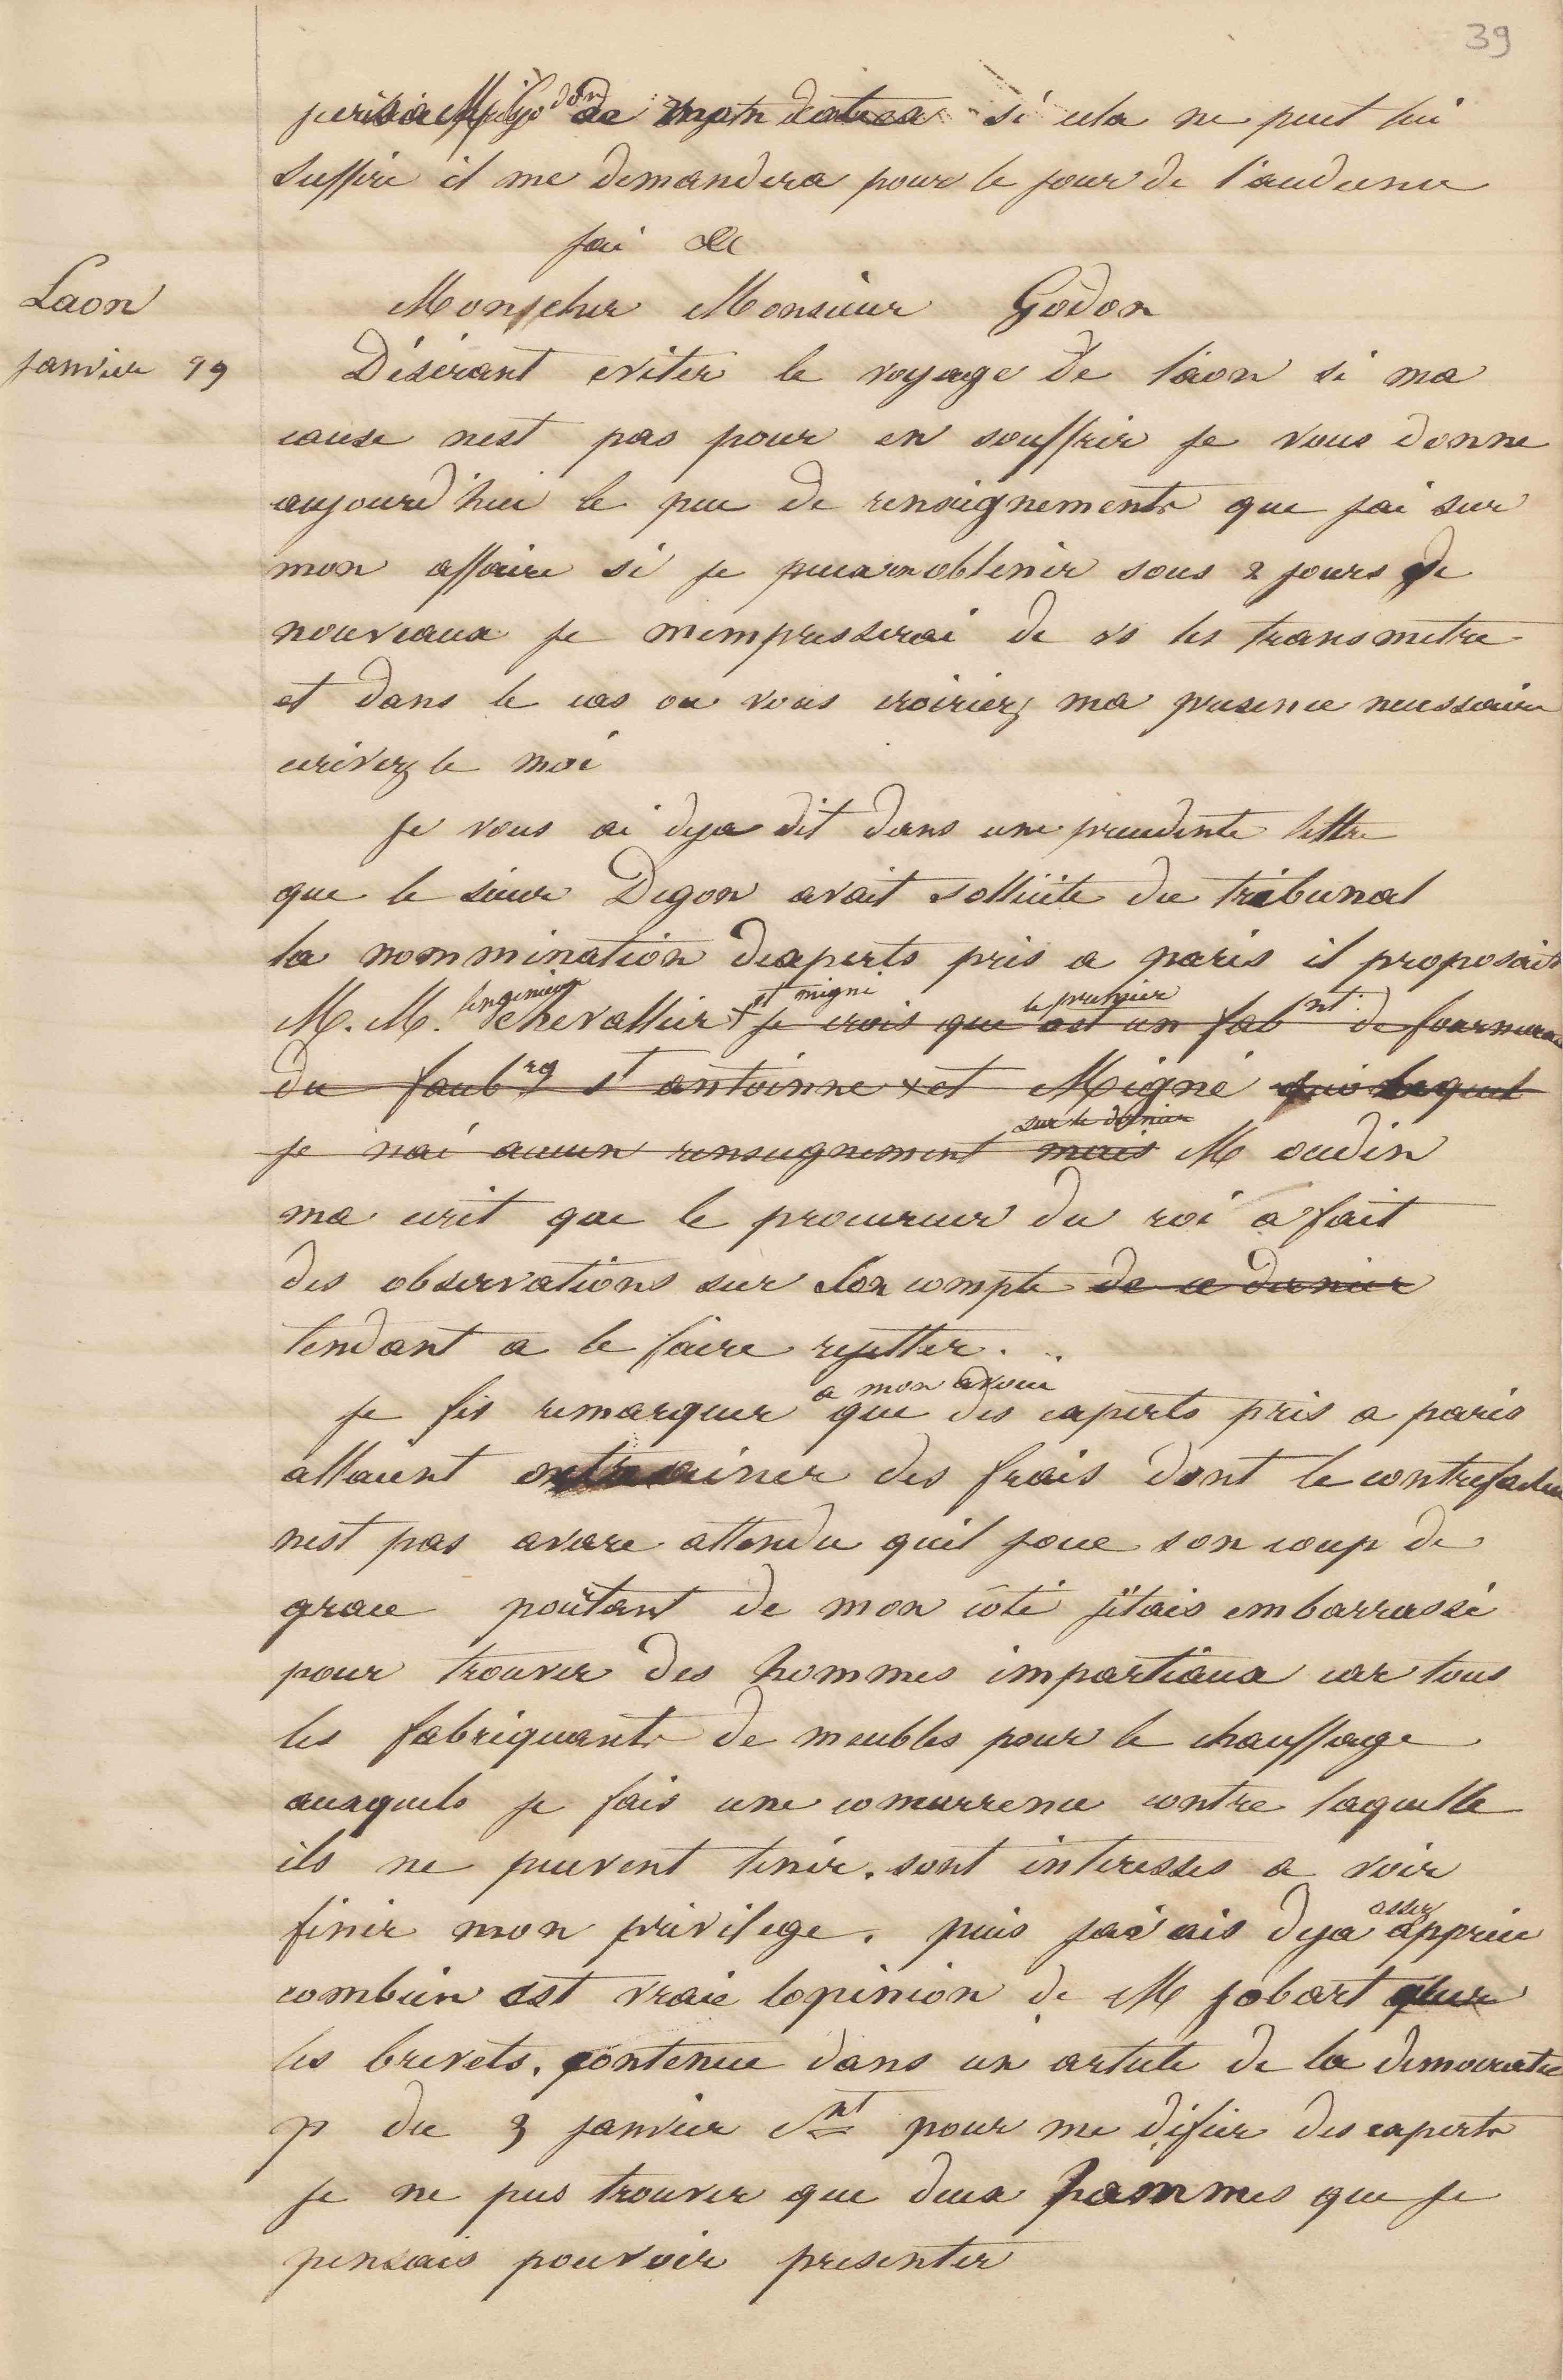 39
si cela ne peut lui
suffire il me demandera pour le jour de l'audience
jai &c
Laon
Mon cher Monsieur Godon
janvier 19
Désirant eviter le voyage de laon si ma
cause nest pas pour en souffrir je vous donne
aujourd'hui le peu de renseignements que jai sur
mon affaire si je peux en obtenir sous 2 jours de
nouveaux je mempresserai de vs les transmetre
et dans le cas ou vous croiriez ma presence necessaire
ecrivez le moi
je vous ai deja dit dans une precedente lettre
que le sieur Degon avait sollicite du tribunal
la nommination dexperts pris a paris il proposait
M. M. lingenieur chevallier + et migni je crois que le premier est un fabnt de fourneaux
du faubrg st antoinne x et Migné lequel
je nai aucun renseignement sur le dernier mais M oudin
ma ecrit que le procureur du roi a fait
des observations sur son compte de ce dernier
tendant a le faire rejetter.
je fis remarquer a mon avoué que des experts pris a paris
allaient entrainer des frais dont le contrefacteur
nest pas avare attendu quil joue son coup de
grace pourtant de mon coté jétais embarrassé
pour trouver des hommes impartiaux car tous
les fabriquants de meubles pour le chauffage
auxquels je fais une concurrence contre laquelle
ils ne peuvent tenir. sont interesses a voir
finir mon privilege. puis javais deja assez apprecie
combien est vraie lopinion de M jobart sur
les brevets. contenue dans un article de la democratie
p du 3 janvier ct pour me défier des experts
je ne pus trouver que deux hommes que je
pensais pouvoir presenter